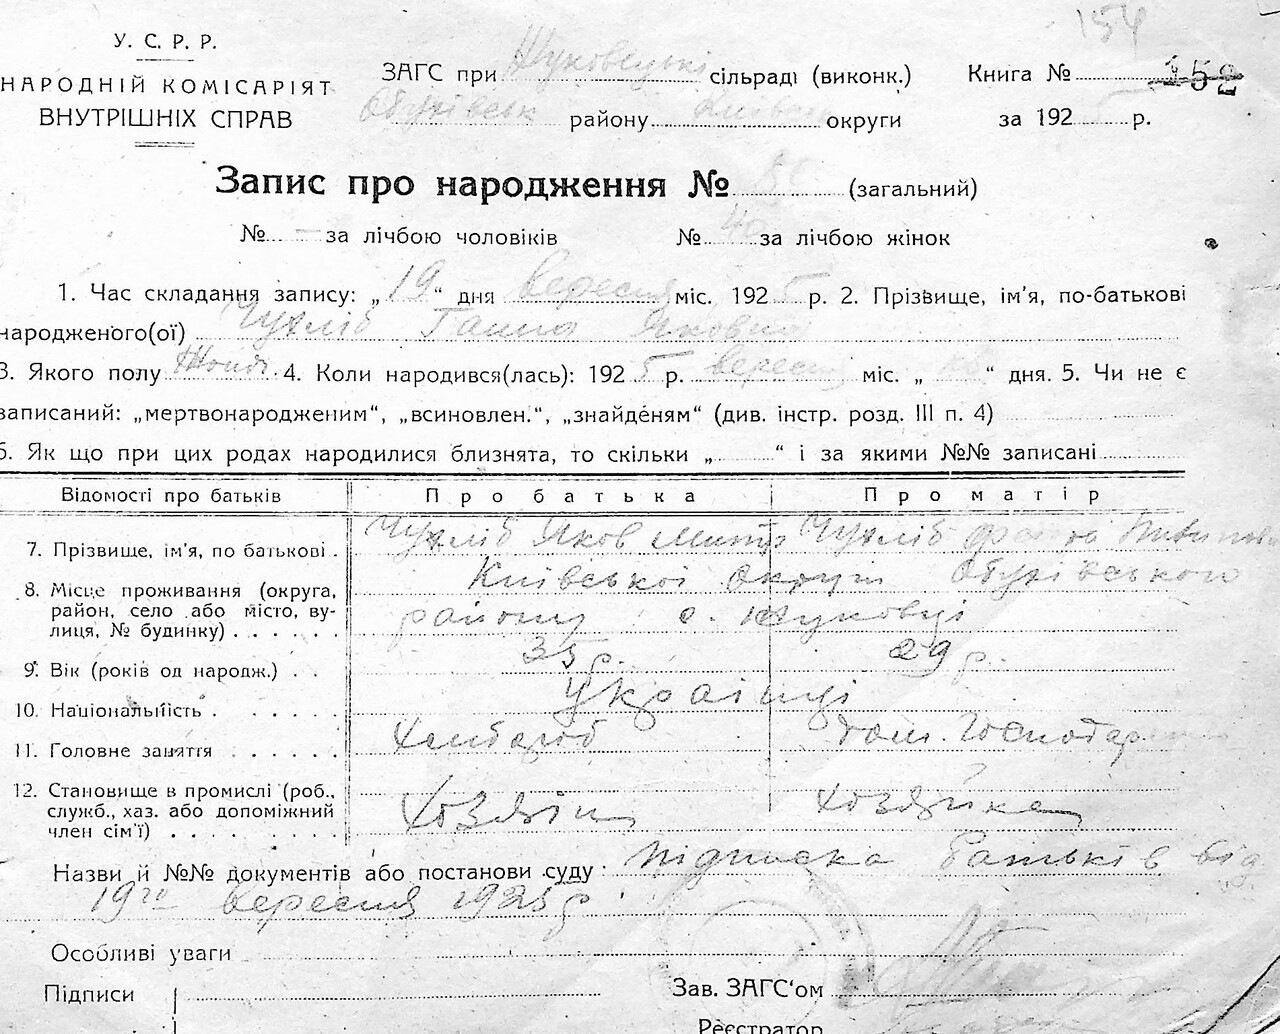 154
У. С. Р. Р.
НАРОДНІЙ КОМІСАРІЯТ
ВНУТРІШНІХ СПРАВ
ЗАГС при Жуковецькі сільраді (виконк.) Книга № 152
Обухівськ району Київськ округи за 192 5 р.
Запис про народження № (загальний)
№ — за лічбою чоловіків № 40 за лічбою жінок
1. Час складання запису: „19" дня вересня міс. 192 5 р. 2. Прізвище, ім'я, по-батькові
народженого(ої) Чухліб Ганна Яковна
3. Якого полу Жоноч 4. Коли народився(лась): 192 5 р. вересня міс. „ " дня. 5. Чи не є
записаний: „мертвонародженим", „всиновлен.", „знайденям" (див. інстр. розд. III п. 4)
6. Як що при цих родах народилися близнята, то скільки „ " і за якими №№ записані
Відомості про батьків Про батька Про матір
7. Прізвище, ім'я, по батькові . Чухліб Яков Митр Чухліб
8. Місце проживання (округа, район, село або місто, вулиця, № будинку) Київської округи Обухівського
району с. Жуковці
9. Вік (років од народж.) . . 35 р. 29 р.
10. Національність . Українці
11. Головне заняття Хлібороб дом. Господар
12. Становище в промислі (роб., служб., хаз. або допоміжний член сім'ї) Хозяін хозяйка
Назви й №№ документів або постанови суду: Підписка батьків від
19го вересня 1925 р.
Особливі уваги
Підписи Зав. ЗАГС'ом
Реєстратор